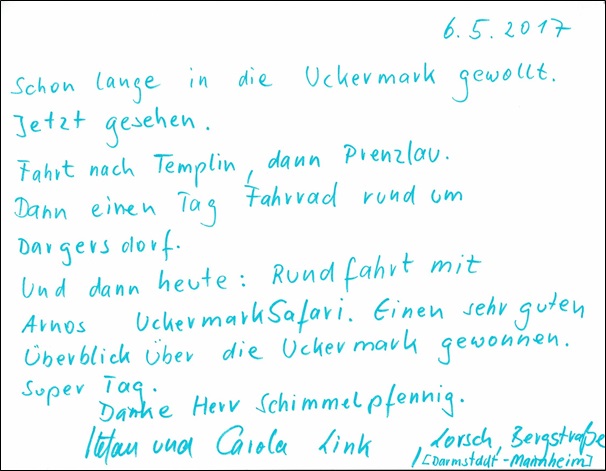 6.5.2017
Schon lange in die Uckermark gewollt.
Jetzt gesehen.
Fahrt nach Templin, dann Prenzlau.
Dann einen Tag Fahrrad rund um
Dargersdorf.
Und dann heute: Rundfahrt mit
Arnos UckermarkSafari. Einen sehr guten
Überblick über die Uckermark gewonnen.
Super Tag.
Danke Herr Schimmelpfennig.
Stefan und Carola Link, Lorsch, Bergstraße
[Darmstadt-Mannheim]